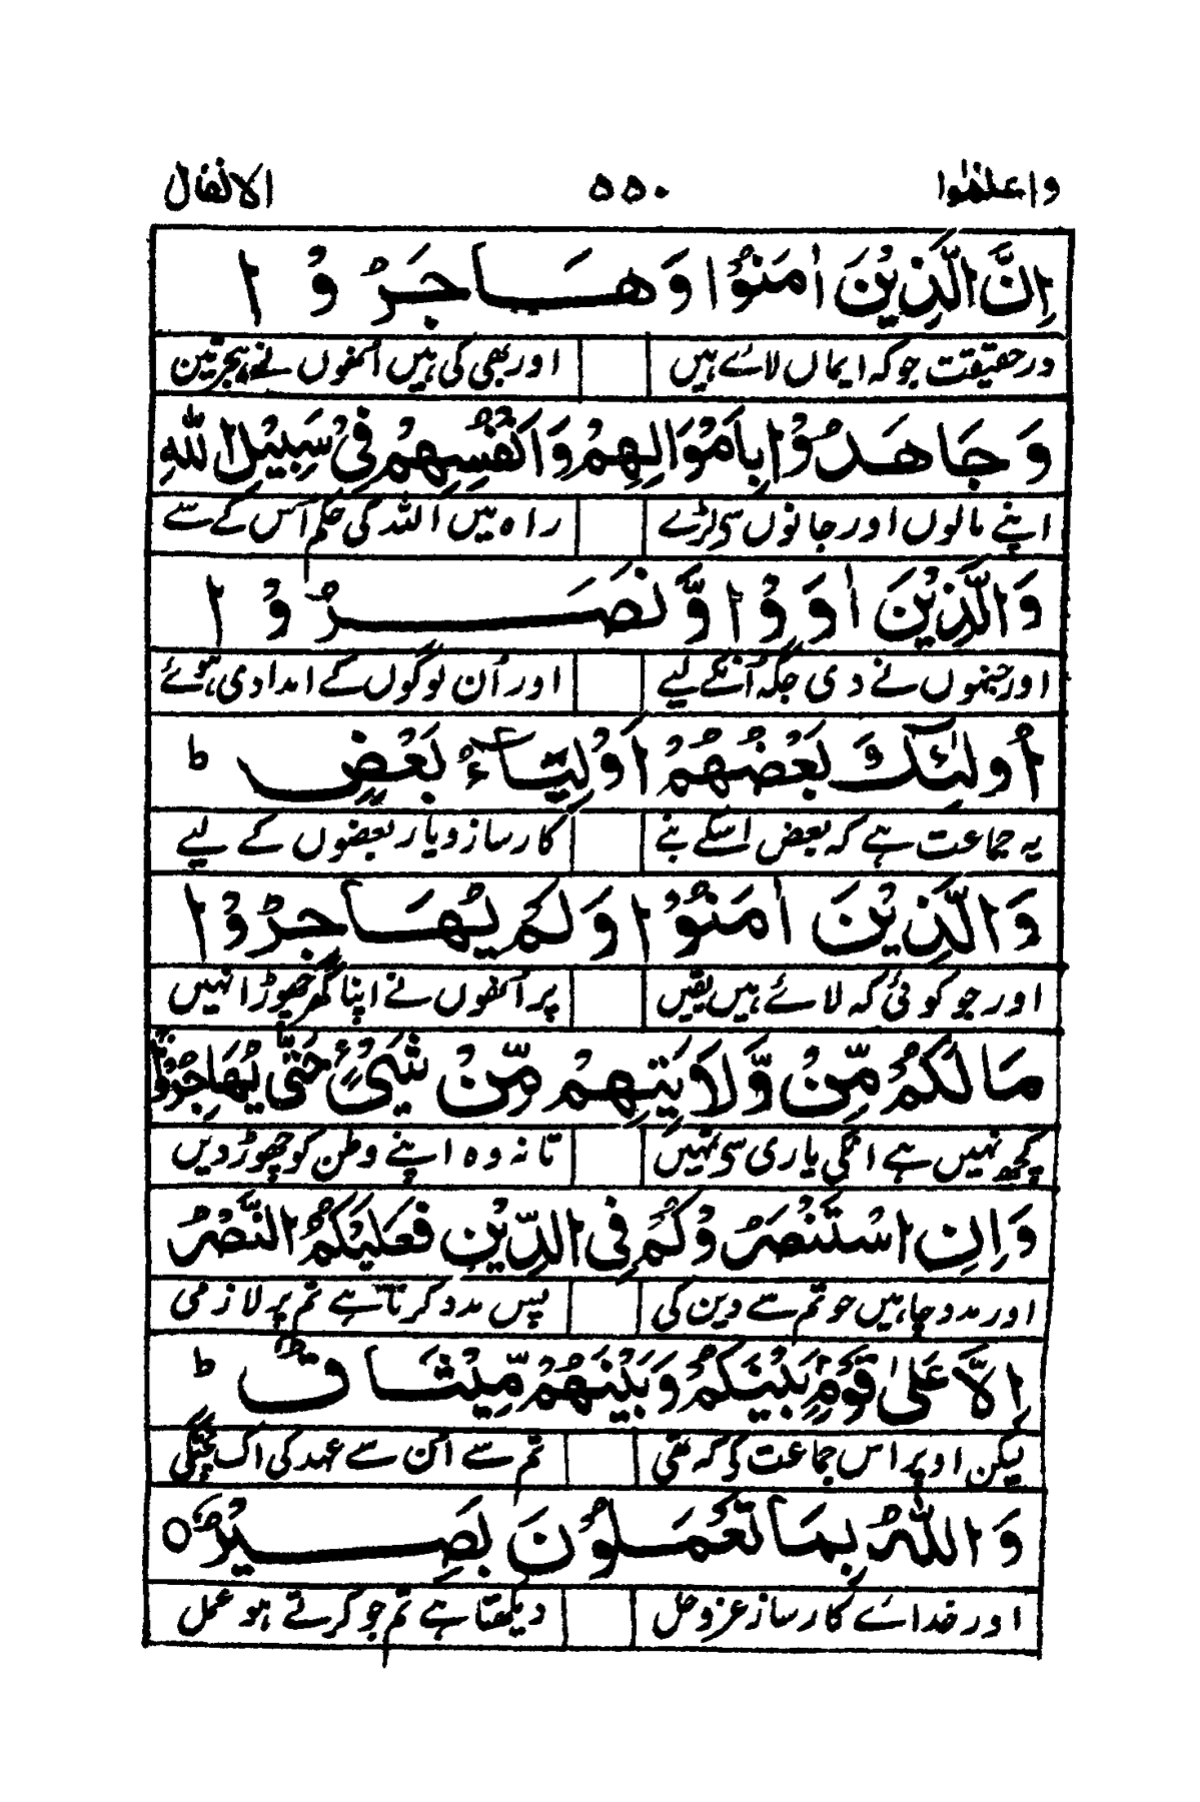 واعلموا ۵۵۰ الانفال
اِنَّ الَّذِیْنَ اٰمَنُوْا وَهَاجَرُوْا
درحقیقت جو کہ ایماں لائے ہیں اور بھی کی ہیں اُنھوں نے ہجرتیں
وَجَاهَدُوْا بِاَمْوَالِهِمْ وَاَنْفُسِهِمْ فِیْ سَبِیْلِ اللّٰهِ
اپنے مالوں اور جانوں سی لڑے راہ میں اللہ کی حکم اُس کے سے
وَالَّذِیْنَ اٰوَوْا وَّنَصَرُوْا
اور جنہوں نے دی جگہ اُنکے لیے اور اُن لوگوں کے امدادی ہوئے
اُولٰٓئِكَ بَعْضُهُمْ اَوْلِیَآءُ بَعْضٍ ط
یہ جماعت ہے کہ بعض اسکے بنے کارساز و یار بعضوں کے لیے
وَالَّذِیْنَ اٰمَنُوْا وَلَمْ یُهَاجِرُوْا
اور جو کوئی کہ لائے ہیں یقیں پر اُنھوں نے اپنا گھر چھوڑا نہیں
مَا لَكُمْ مِّنْ وَّلَایَتِهِمْ مِّنْ شَیْءٍ حَتّٰی یُهَاجِرُوْا
کچھ نہیں ہے انکی یاری سی تمہیں تا نہ وہ اپنے وطن کو چھوڑ دیں
وَاِنِ اسْتَنْصَرُوْكُمْ فِی الدِّیْنِ فَعَلَیْكُمُ النَّصْرُ
اور مدد چاہیں جو تم سے دین کی پس مدد کرنا ہے تم پر لازمی
اِلَّا عَلٰی قَوْمٍۭ بَیْنَكُمْ وَبَیْنَهُمْ مِّیْثَاقٌ ط
لیکن اوپر اس جماعت کے کہ تھی تم سے اُن سے عہد کی اک پختگی
وَاللّٰهُ بِمَا تَعْمَلُوْنَ بَصِیْرٌ ۝
اور خدائے کارساز عزوجل دیکھتا ہے تم جو کرتے ہو عمل